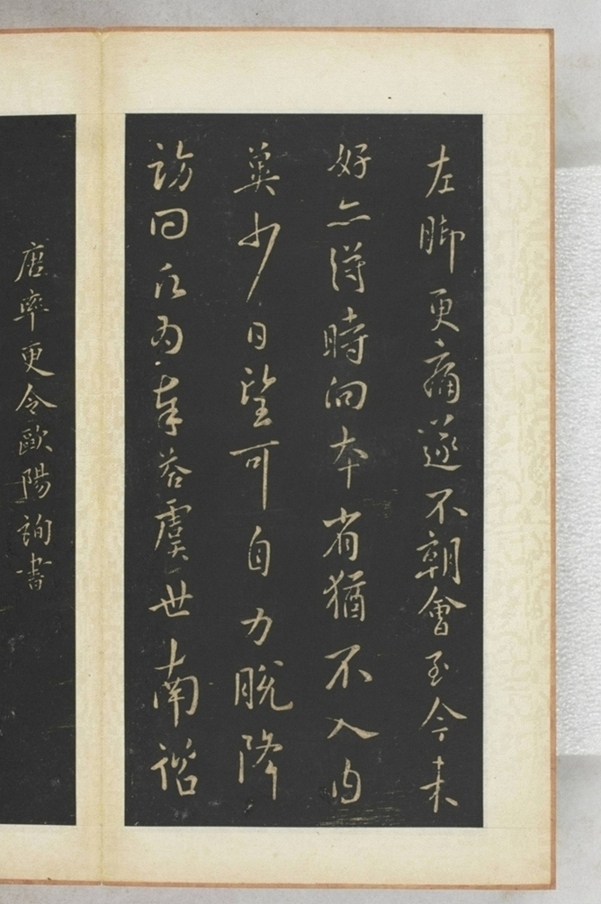 左脚更痛遂不朝會至今未
好亦得時向本省猶不入內
冀少日望可自力脫降
訪問願為奉答虞世南諮
唐率更令歐陽詢書